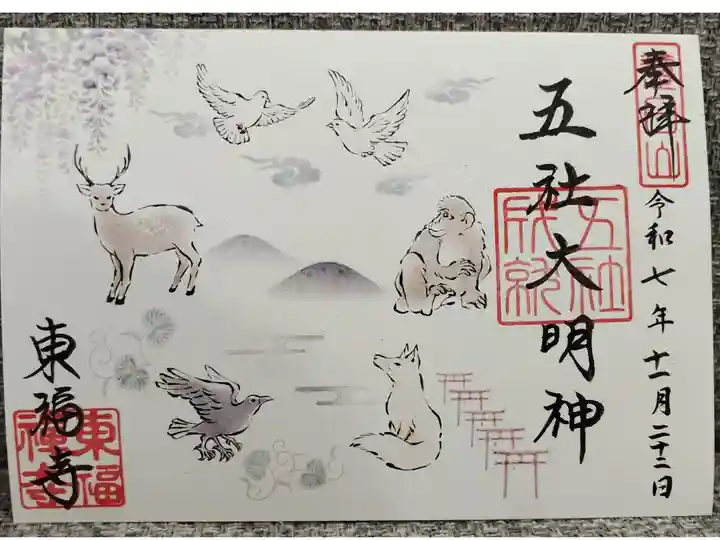 奉拝
令和七年十一月二十二日
五社大明神
五社
成就
東福寺
東福
禅寺